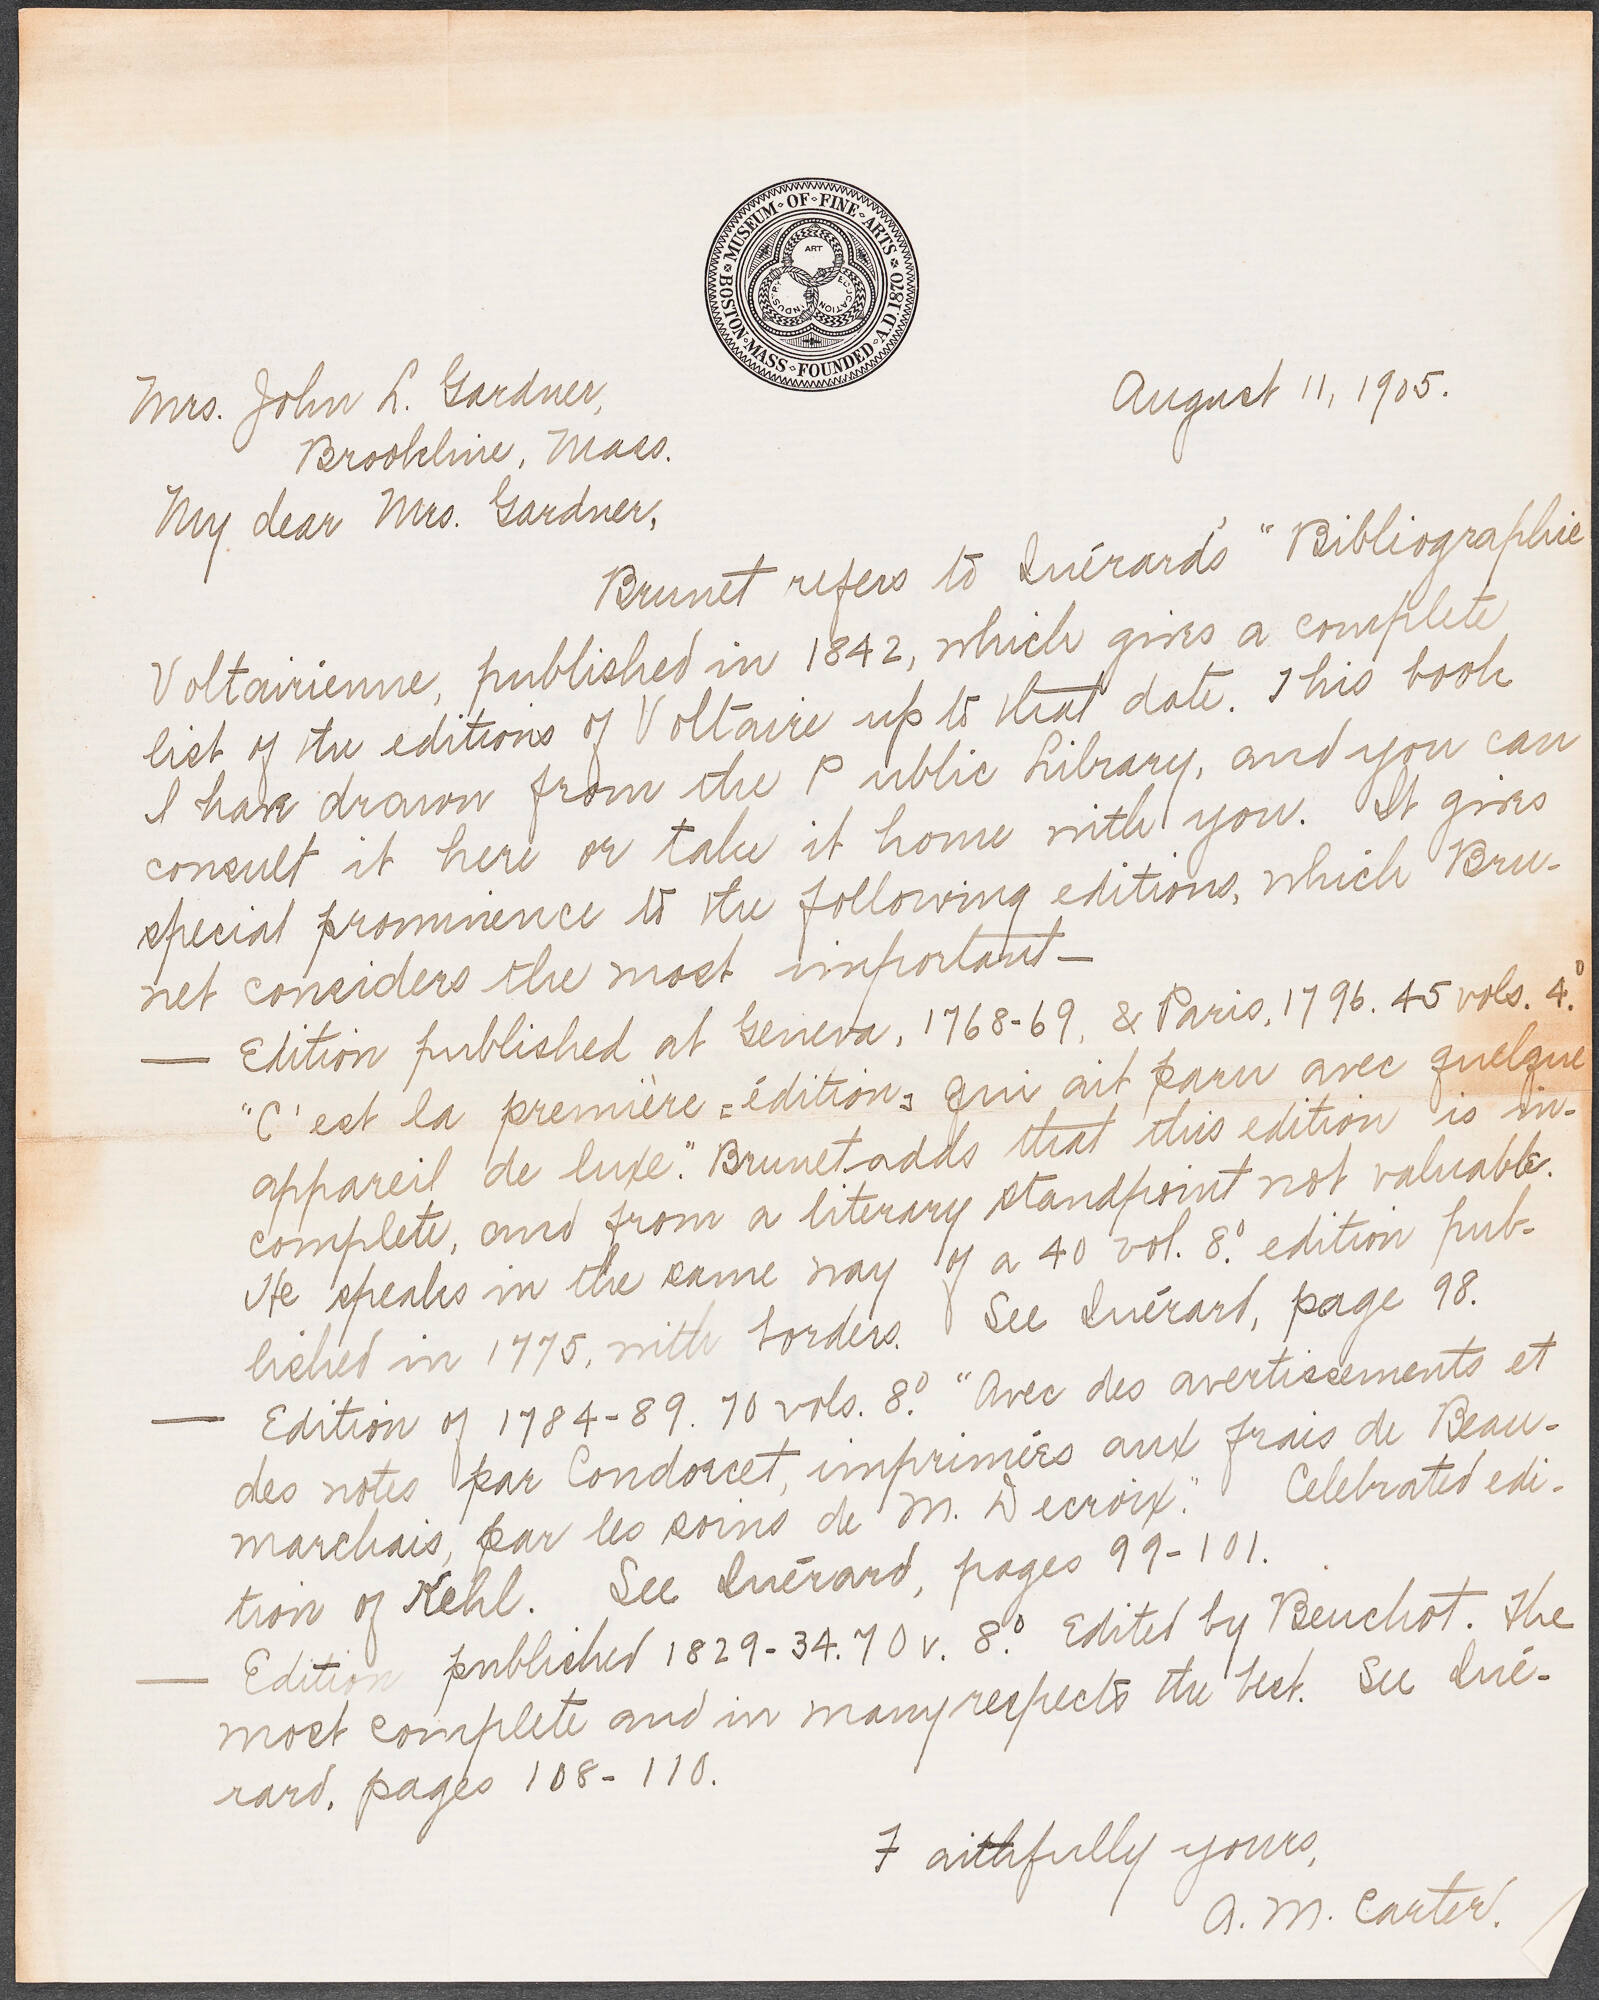 MUSEUM · OF · FINE · ARTS
BOSTON · MASS · FOUNDED · A.D. 1870
ART
INDUSTRY
EDUCATION
August 11, 1905.
Mrs. John L. Gardner,
Brookline, Mass.
My dear Mrs. Gardner,
Brunet refers to Quérard's "Bibliographie
Voltairienne, published in 1842, which gives a complete
list of the editions of Voltaire up to that date. This book
I have drawn from the Public Library, and you can
consult it here or take it home with you. It gives
special prominence to the following editions, which Bru-
net considers the most important—
— Edition published at Geneva, 1768-69, & Paris, 1796. 45 vols. 4.°
"C'est la première [édition] qui ait paru avec quelque
appareil de luxe." Brunet adds that this edition is in-
complete, and from a literary standpoint not valuable.
He speaks in the same way of a 40 vol. 8.° edition pub-
lished in 1775, with borders. See Quérard, page 98.
— Edition of 1784-89. 70 vols. 8.° "Avec des avertissements et
des notes par Condorcet, imprimées aux frais de Beau-
marchais, par les soins de M. Decroix." Celebrated edi-
tion of Kehl. See Quérard, pages 99-101.
— Edition published 1829-34. 70 v. 8.° Edited by Beuchot. The
most complete and in many respects the best. See Qué-
rard, pages 108-110.
Faithfully yours,
A. M. Carter.